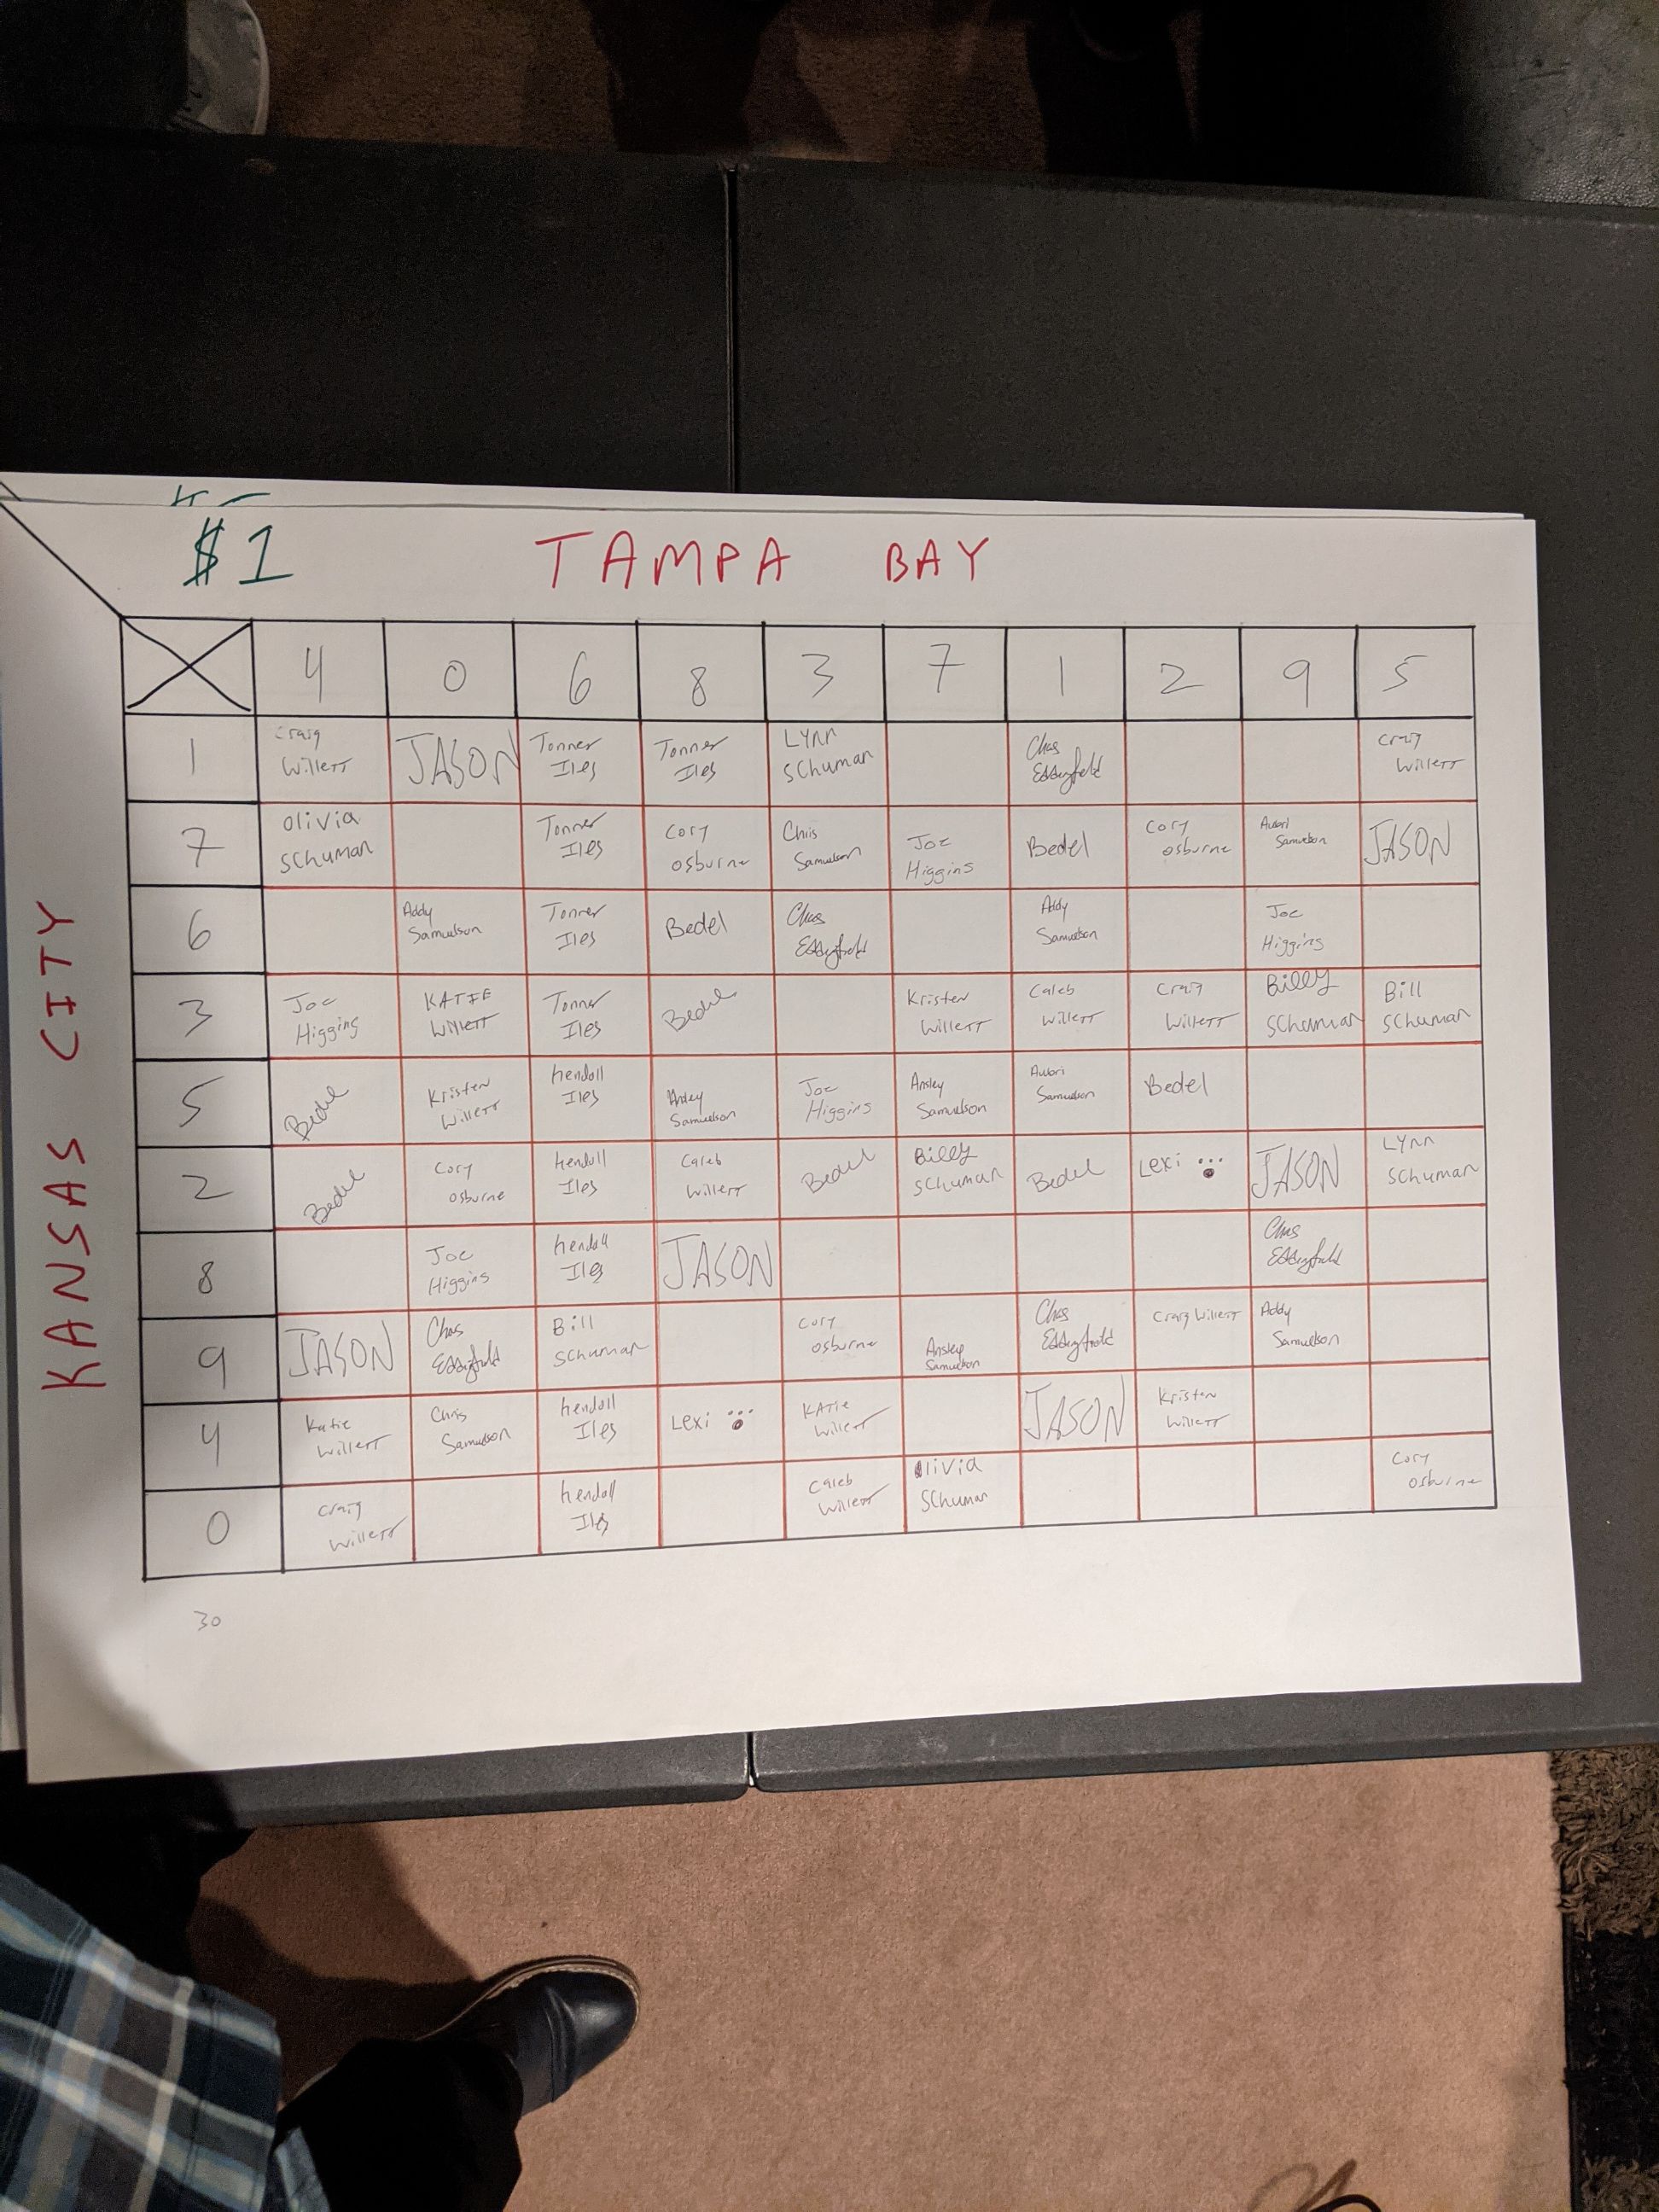 $1 TAMPA BAY
KANSAS CITY
4 0 6 8 3 7 1 2 9 5
1
Craig Willett
JASON
Tonner Iles
Tonner Iles
LYNN Schuman
Chas
Craig Willett
7
Olivia Schuman
Tonner Iles
Cory Osburne
Chris Samuelson
Joe Higgins
Bedel
Cory Osburne
Aubri Samuelson
JASON
6
Addy Samuelson
Tonner Iles
Bedel
Chas
Addy Samuelson
Joe Higgins
3
Joe Higgins
KATIE Willett
Tonner Iles
Bedel
Kristen Willett
Caleb Willett
Craig Willett
Billy Schuman
Bill Schuman
5
Bedel
Kristen Willett
Kendall Iles
Ansley Samuelson
Joe Higgins
Ansley Samuelson
Aubri Samuelson
Bedel
2
Bedel
Cory Osburne
Kendall Iles
Caleb Willett
Bedel
Billy Schuman
Bedel
Lexi
JASON
LYNN Schuman
8
Joe Higgins
Kendall Iles
JASON
Chas
9
JASON
Chas
Bill Schuman
Cory Osburne
Ansley Samuelson
Chas
Craig Willett
Addy Samuelson
4
Katie Willett
Chris Samuelson
Kendall Iles
Lexi
KATIE Willett
JASON
Kristen Willett
0
Craig Willett
Kendall Iles
Caleb Willett
Olivia Schuman
Cory Osburne
30